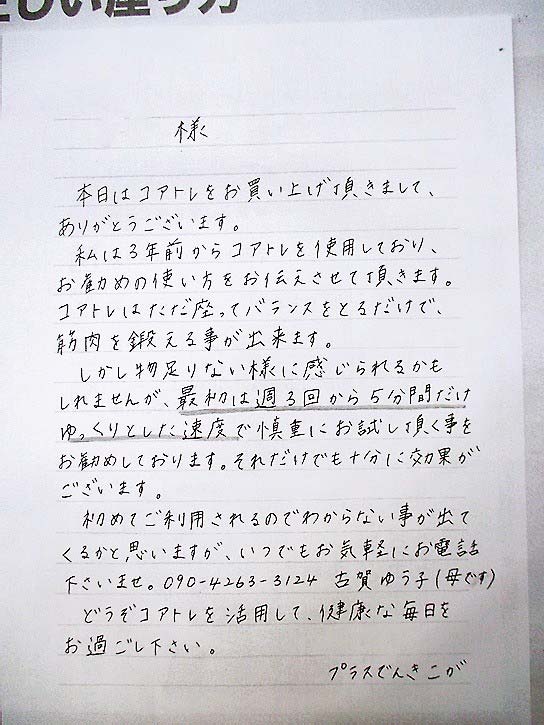 正しい座り方
様
本日はコアトレをお買い上げ頂きまして、
ありがとうございます。
私は3年前からコアトレを使用しており、
お勧めの使い方をお伝えさせて頂きます。
コアトレはただ座ってバランスをとるだけで、
筋肉を鍛える事が出来ます。
しかし物足りない様に感じられるかも
しれませんが、最初は週3回から5分間だけ
ゆっくりとした速度で慎重にお試し頂く事を
お勧めしております。それだけでも十分に効果が
ございます。
初めてご利用されるのでわからない事が出て
くるかと思いますが、いつでもお気軽にお電話
下さいませ。090-4263-3124 古賀ゆう子(母です)
どうぞコアトレを活用して、健康な毎日を
お過ごし下さい。
プラスでんき こが